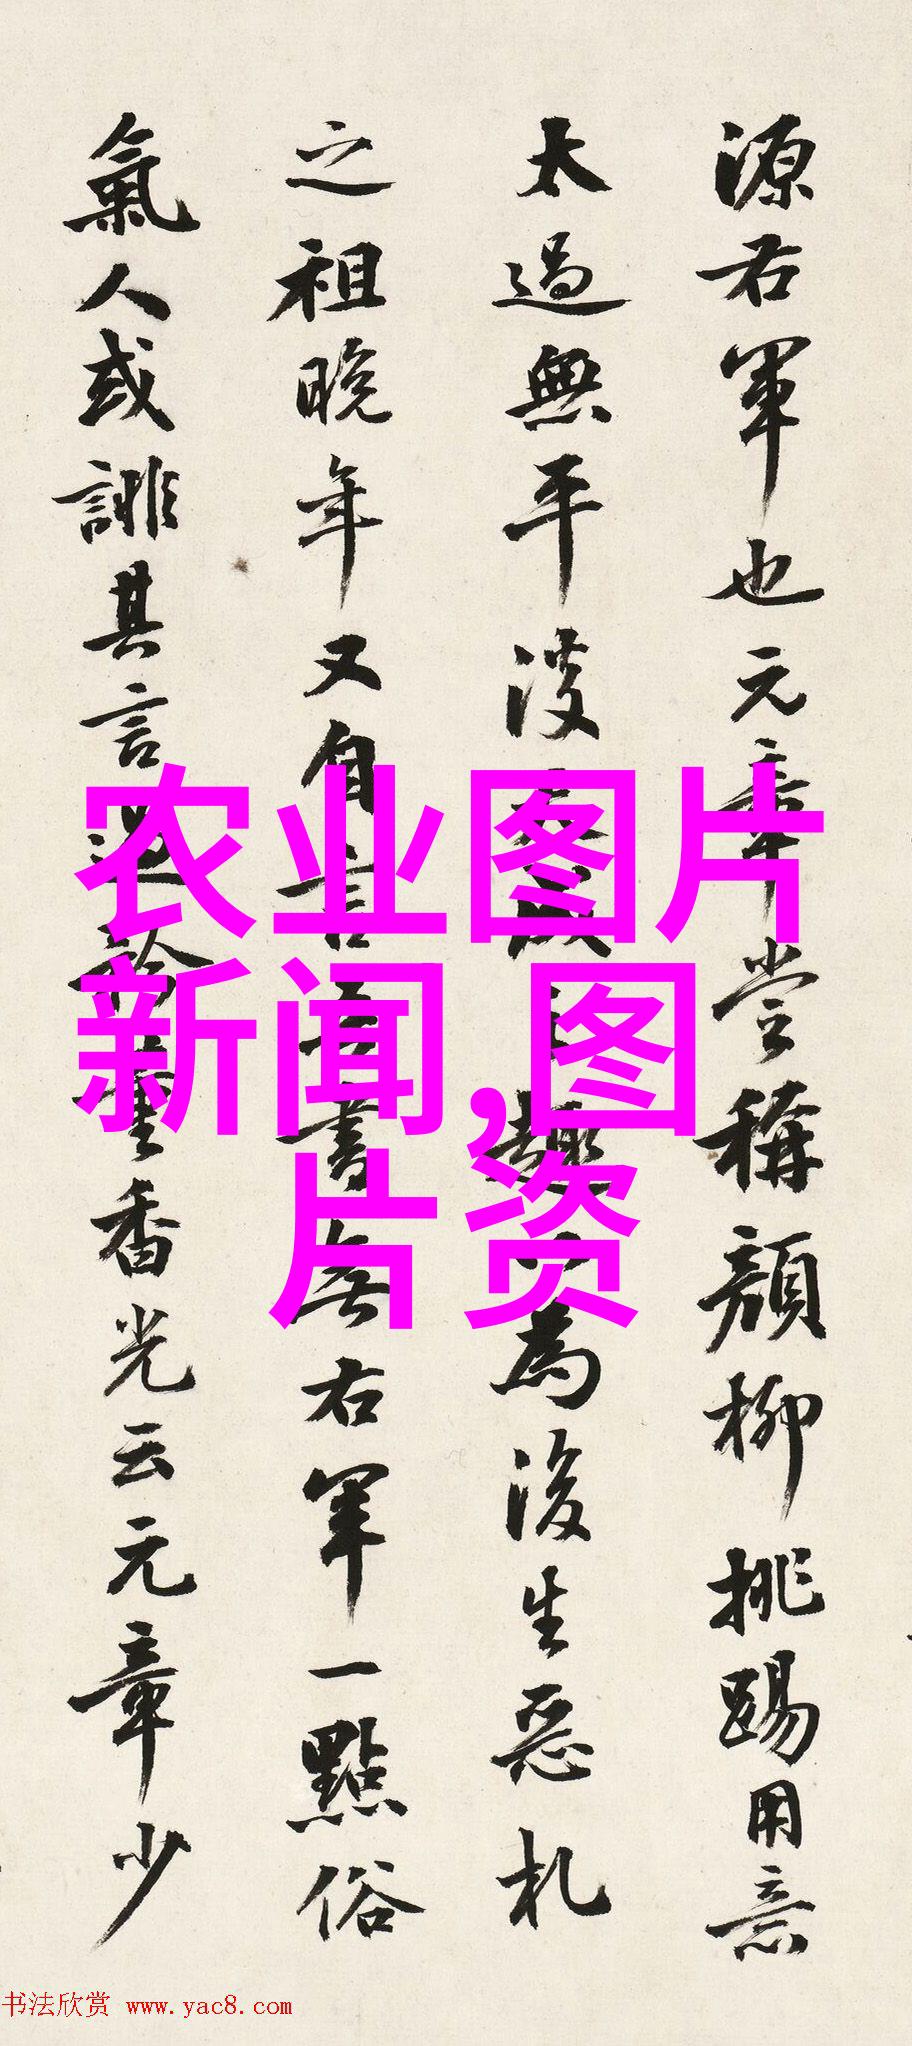 源右軍也元章嘗稱顏柳挑踢用意
太過無平淡天成之趣為後生惡札
之祖晚年又自言吾書無右軍一點俗
氣人或誹其言過矜董香光云元章少
农业图片
新闻,图
片资
书法欣赏 www.yac8.com